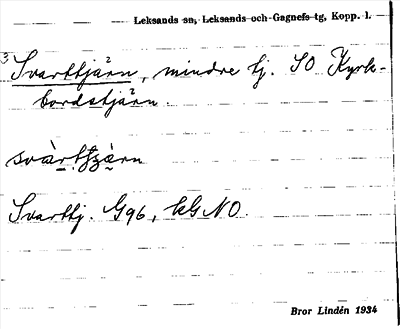 Leksands sn, Leksands och Gagnefs tg, Kopp. l.
3 Svarttjärn, mindre tj. SO Kyrk-
bordstjärn.
Svarttj. G96, kG NO.
Bror Lindén 1934